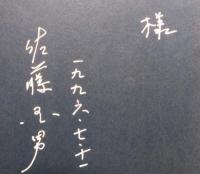 様
一九九六・七・十一
佐藤忠男